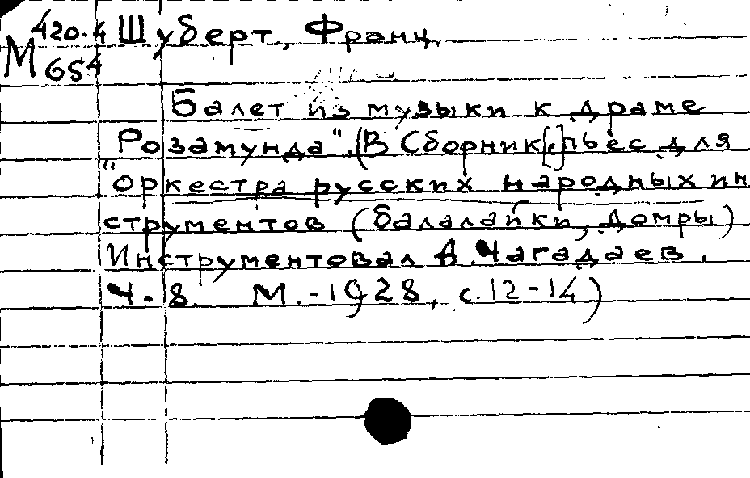 М 420.4 Шуберт, Франц.
654
Балет из музыки к драме
"Розамунда". (В Сборник[.] пьес для
оркестра русских народных ин
струментов (балалайки, домры)
Инструментовал А. Чагадаев.
Ч. 8. М. - 1928, с. 12-14)